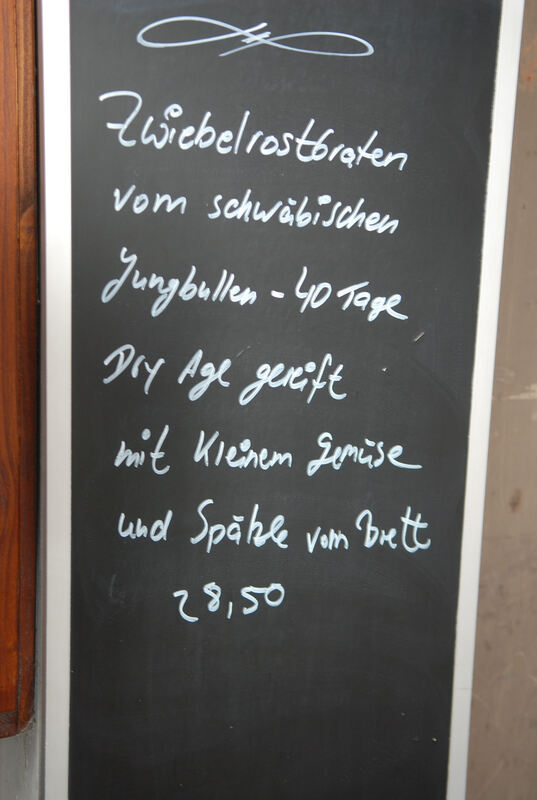 Zwiebelrostbraten
vom schwäbischen
Jungbullen - 40 Tage
Dry Age gereift
mit kleinem Gemüse
und Spätzle vom Brett
28,50